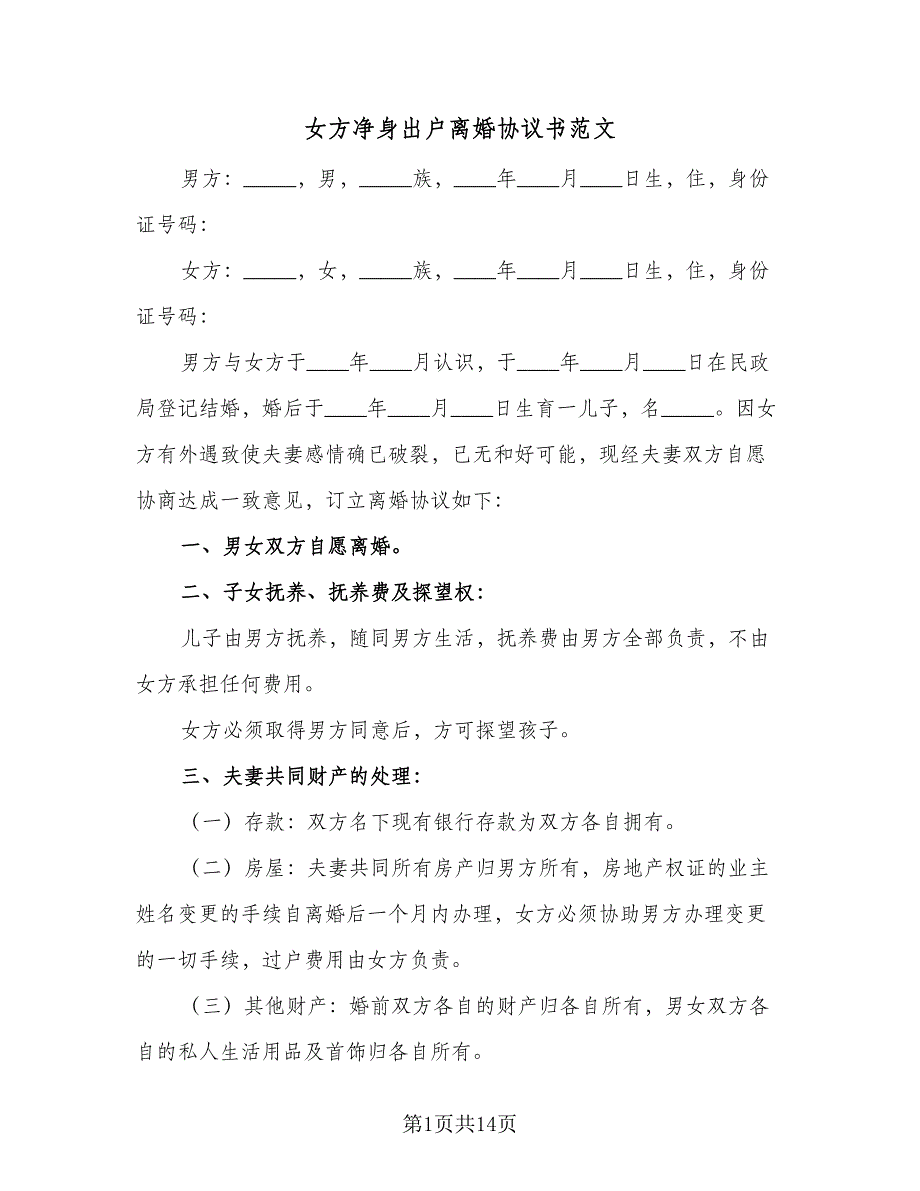 女方净身出户离婚协议书范文
男方：_____，男，_____族，____年____月____日生，住，身份
证号码：
女方：_____，女，_____族，____年____月____日生，住，身份
证号码：
男方与女方于____年____月认识，于____年____月____日在民政
局登记结婚，婚后于____年____月____日生育一儿子，名_____。因女
方有外遇致使夫妻感情确已破裂，已无和好可能，现经夫妻双方自愿
协商达成一致意见，订立离婚协议如下：
一、男女双方自愿离婚。
二、子女抚养、抚养费及探望权：
儿子由男方抚养，随同男方生活，抚养费由男方全部负责，不由
女方承担任何费用。
女方必须取得男方同意后，方可探望孩子。
三、夫妻共同财产的处理：
（一）存款：双方名下现有银行存款为双方各自拥有。
（二）房屋：夫妻共同所有房产归男方所有，房地产权证的业主
姓名变更的手续自离婚后一个月内办理，女方必须协助男方办理变更
的一切手续，过户费用由女方负责。
（三）其他财产：婚前双方各自的财产归各自所有，男女双方各
自的私人生活用品及首饰归各自所有。
第1页共14页